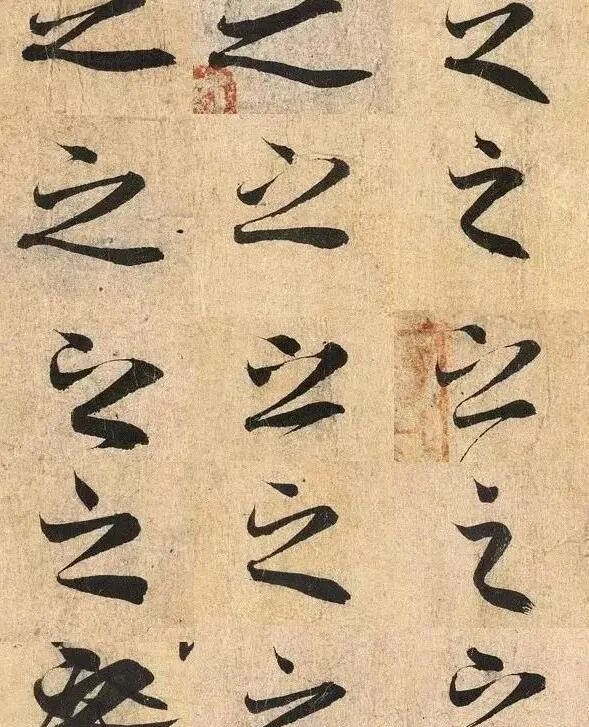 之之之
之之之
之之之
之之之
之之